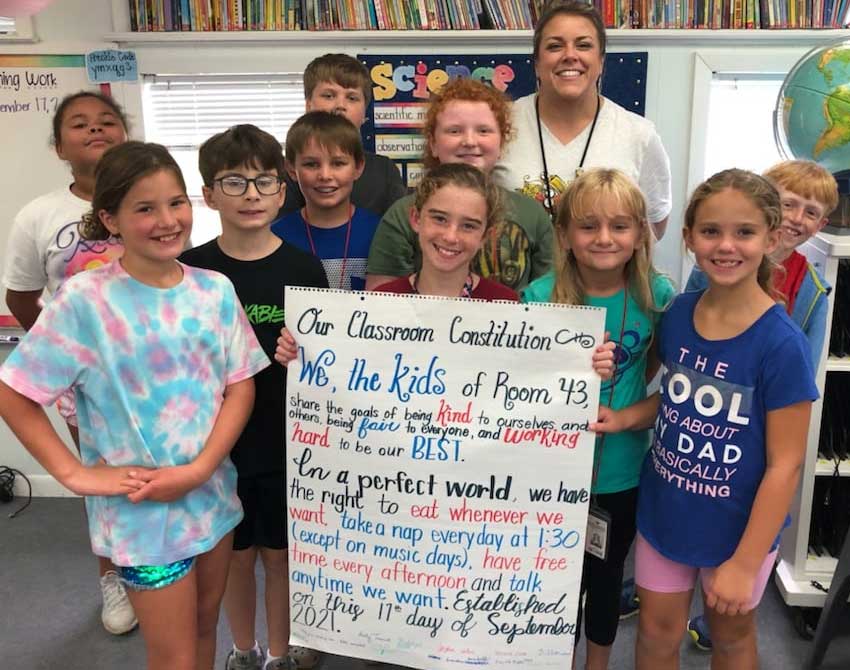 ning Work
ember 17, 2
ymxgg3
Science
scientific m
observation
Our Classroom Constitution
We, the Kids of Room 43,
share the goals of being kind to ourselves and
others, being fair to everyone, and working
hard to be our BEST.
In a perfect world, we have
the right to eat whenever we
want, take a nap everyday at 1:30
(except on music days), have free
time every afternoon and talk
anytime we want. Established
on this 17th day of September
2021.
THE
COOL
ING ABOUT
MY DAD
BASICALLY
VERYTHING